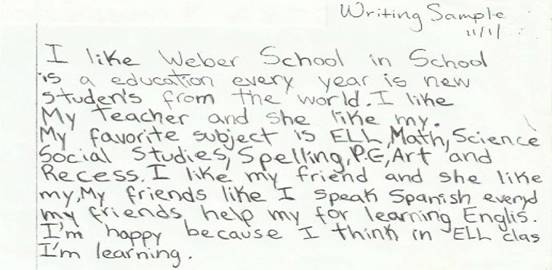 Writing Sample
11/11
I like Weber School in School
is a education every year is new
studen's from the world. I like
My Teacher and she like my.
My favorite subject is ELL, Math, Science
Social Studies, Spelling, P.E, Art and
Recess. I like my friend and she like
my, My friends like I speak Spanish everyd
my friends help my for learning Englis.
I'm happy because I think in ELL clas
I'm learning.